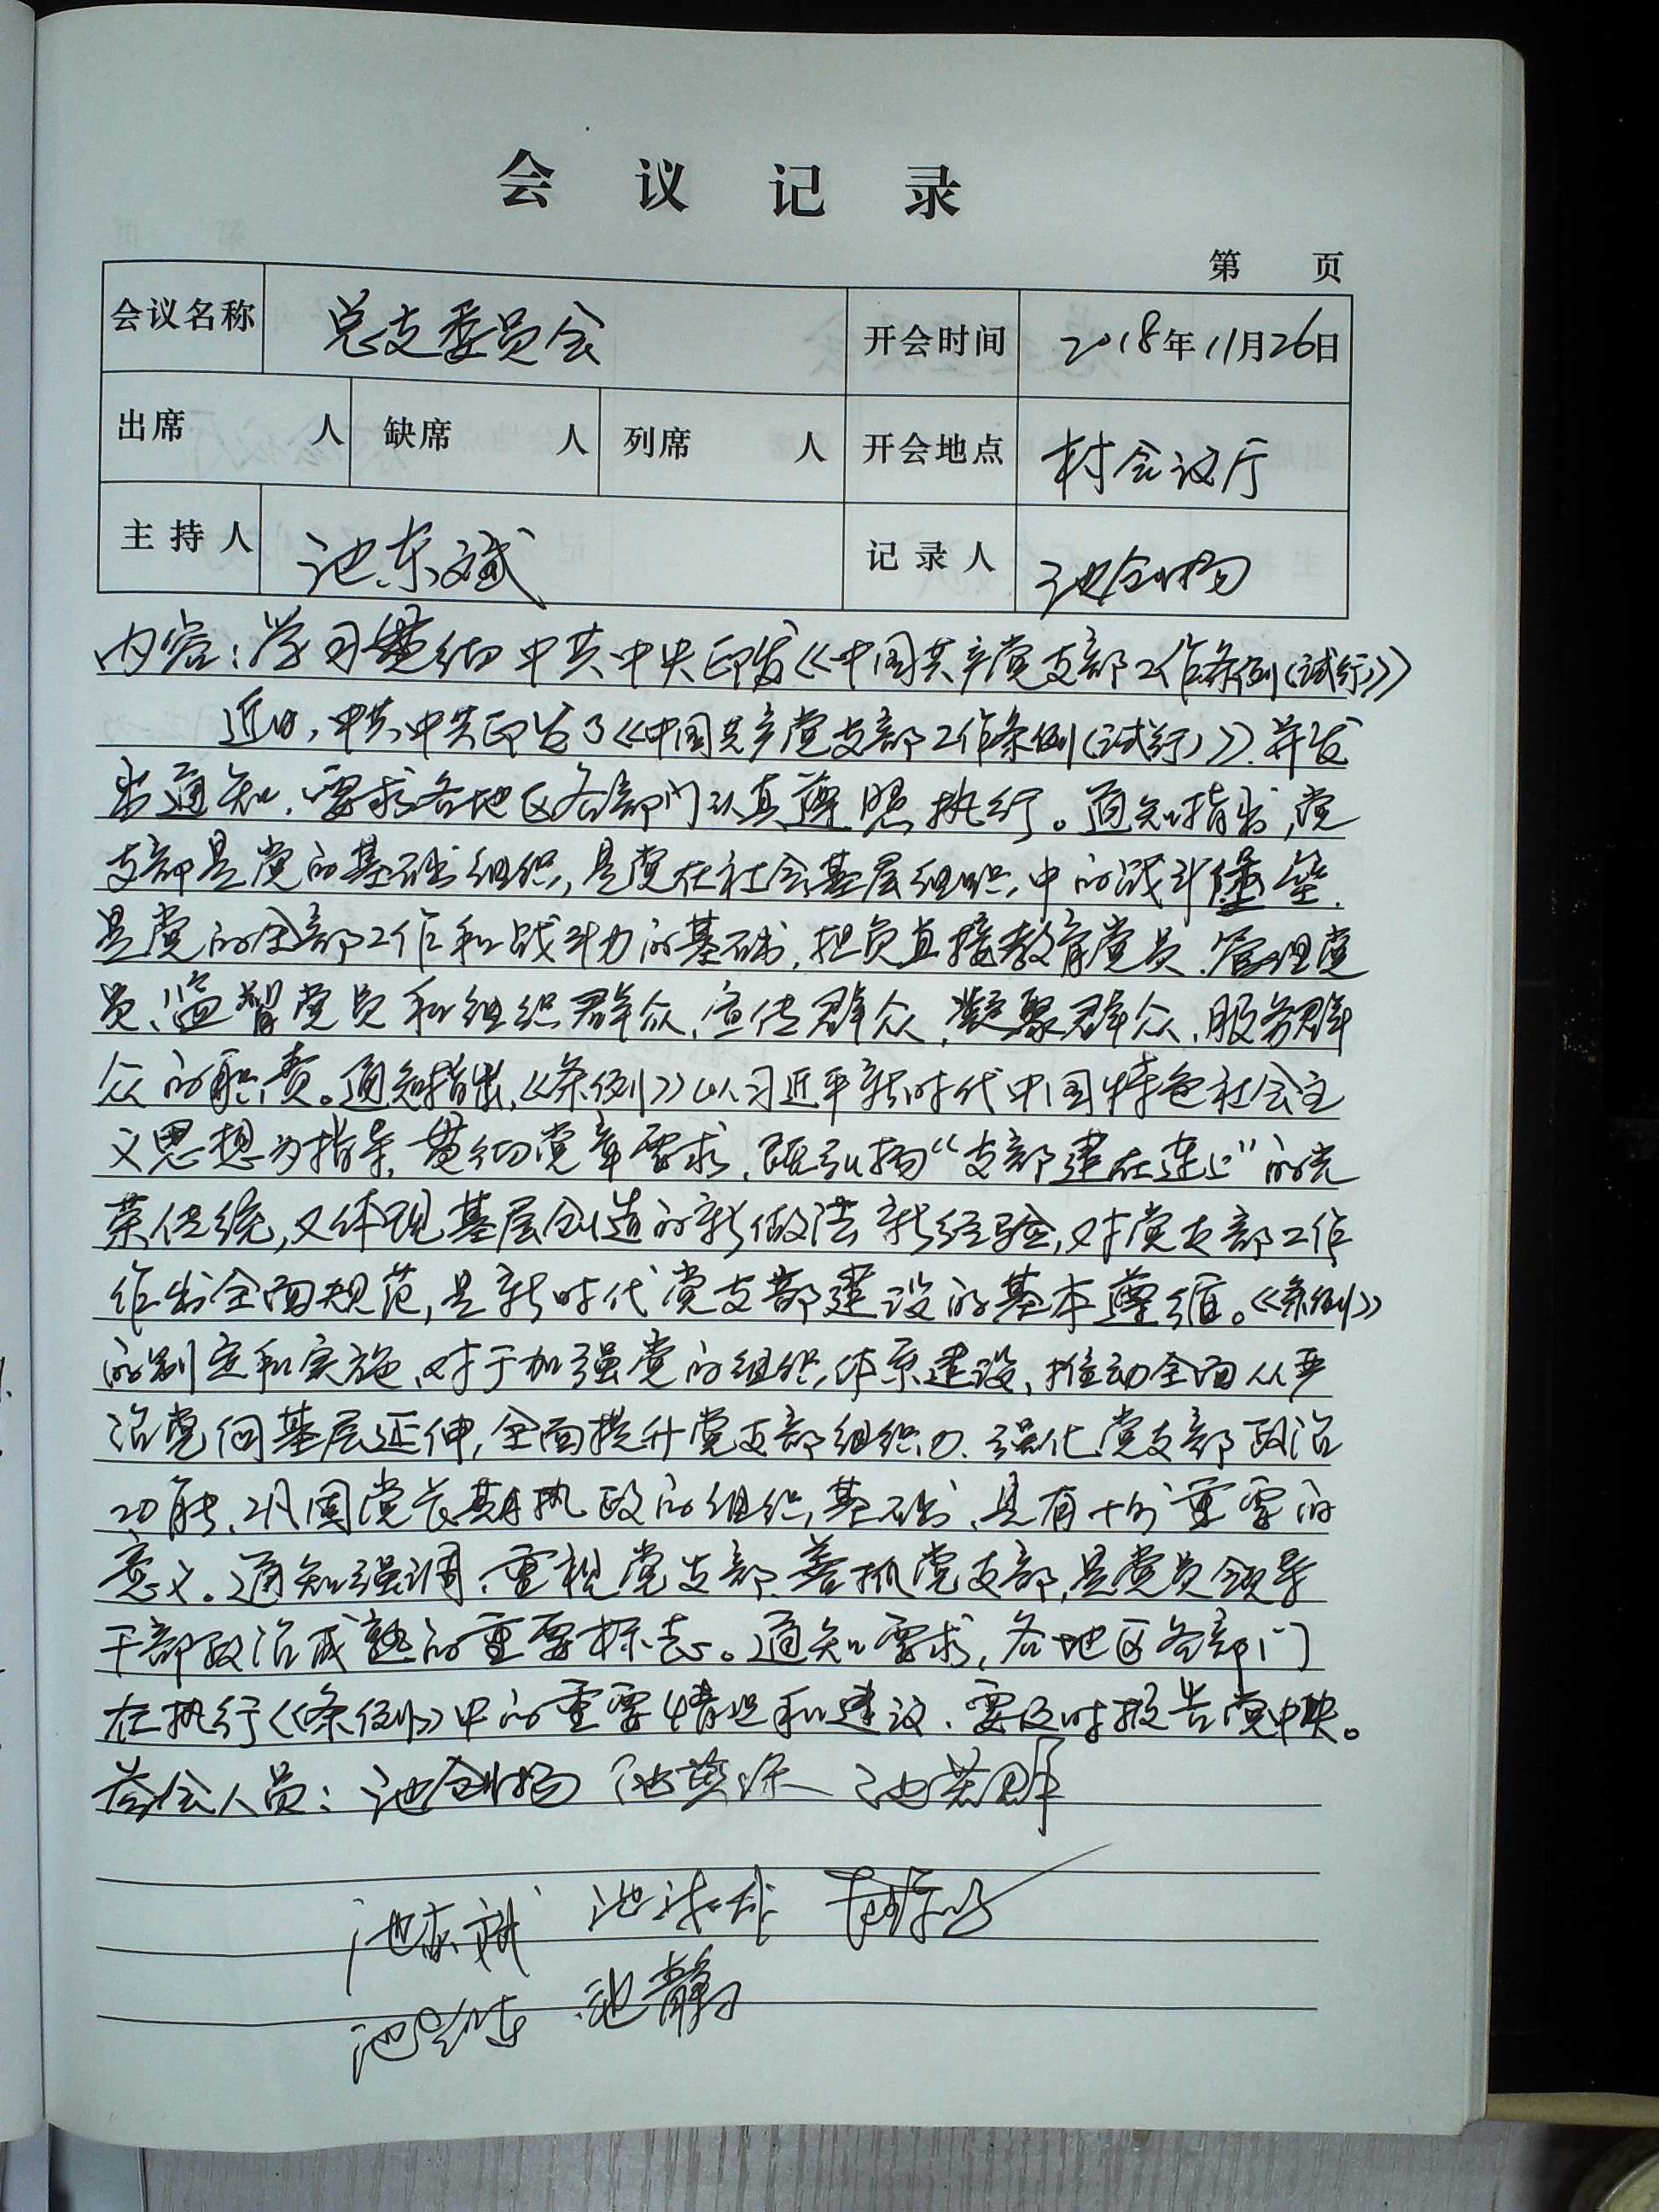 会议记录
第 页
会议名称 总支委员会 开会时间 2018年11月26日
出席 人 缺席 人 列席 人 开会地点 村会议厅
主持人 池东斌 记录人 池创扬
内容:学习贯彻中共中央印发《中国共产党支部工作条例(试行)》
近日,中共中央印发了《中国共产党支部工作条例(试行)》,并发
出通知,要求各地区各部门认真遵照执行。通知指出,党
支部是党的基础组织,是党在社会基层组织中的战斗堡垒,
是党的全部工作和战斗力的基础,担负直接教育党员、管理党
员、监督党员和组织群众、宣传群众、凝聚群众、服务群
众的职责。通知指出,《条例》以习近平新时代中国特色社会主
义思想为指导,贯彻党章要求,既弘扬“支部建在连上”的光
荣传统,又体现基层创造的新做法新经验,对党支部工作
作出全面规范,是新时代党支部建设的基本遵循。《条例》
的制定和实施,对于加强党的组织体系建设,推动全面从严
治党向基层延伸,全面提升党支部组织力,强化党支部政治
功能,巩固党长期执政的组织基础,具有十分重要的
意义。通知强调,重视党支部、善抓党支部,是党员领导
干部政治成熟的重要标志。通知要求,各地区各部门
在执行《条例》中的重要情况和建议,要及时报告党中央。
参会人员:池创扬 池 池 群
池东斌 池
池 池静